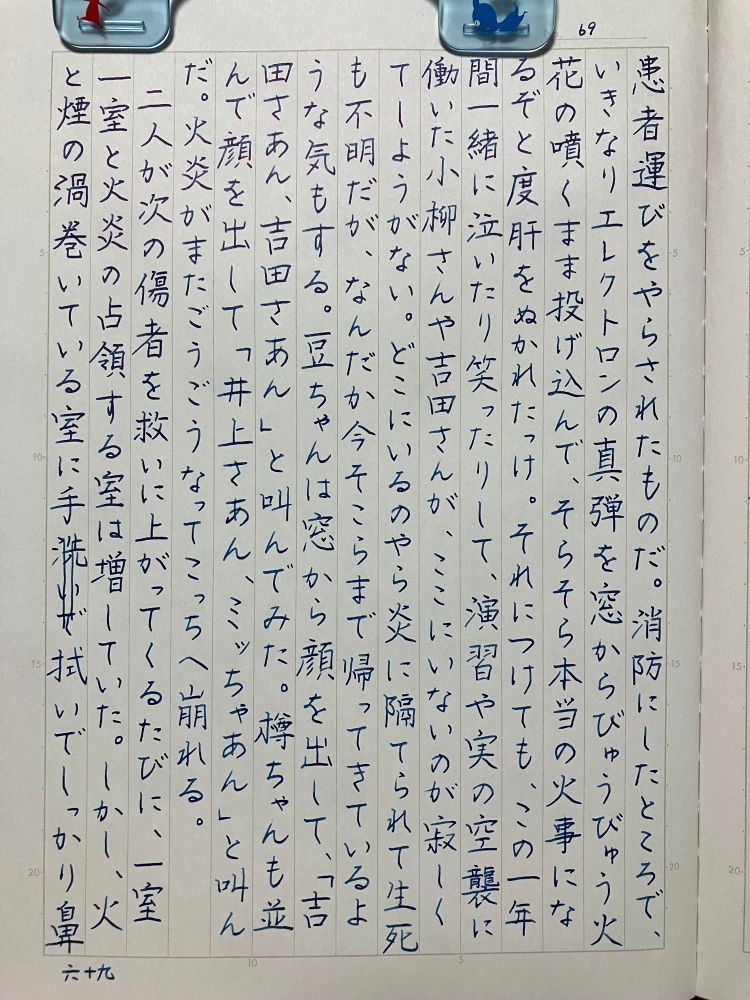 69
患者運びをやらされたものだ。消防にしたところで、
いきなりエレクトロンの真弾を窓からびゅうびゅう火
花の噴くまま投げ込んで、そらそら本当の火事にな
るぞと度肝をぬかれたっけ。それにつけても、この一年
間一緒に泣いたり笑ったりして、演習や実の空襲に
働いた小柳さんや吉田さんが、ここにいないのが寂しく
てしようがない。どこにいるのやら炎に隔てられて生死
も不明だが、なんだか今そこらまで帰ってきているよ
うな気もする。豆ちゃんは窓から顔を出して、「吉
田さあん、吉田さあん」と叫んでみた。樽ちゃんも並
んで顔を出して「井上さあん、ミッちゃあん」と叫ん
だ。火炎がまたごうごうなってこっちへ崩れる。
二人が次の傷者を救いに上がってくるたびに、一室
一室と火炎の占領する室は増していた。しかし、火
と煙の渦巻いている室に手拭いでしっかり鼻
六十九
5
10
15
20
5
10
15
20
10
5